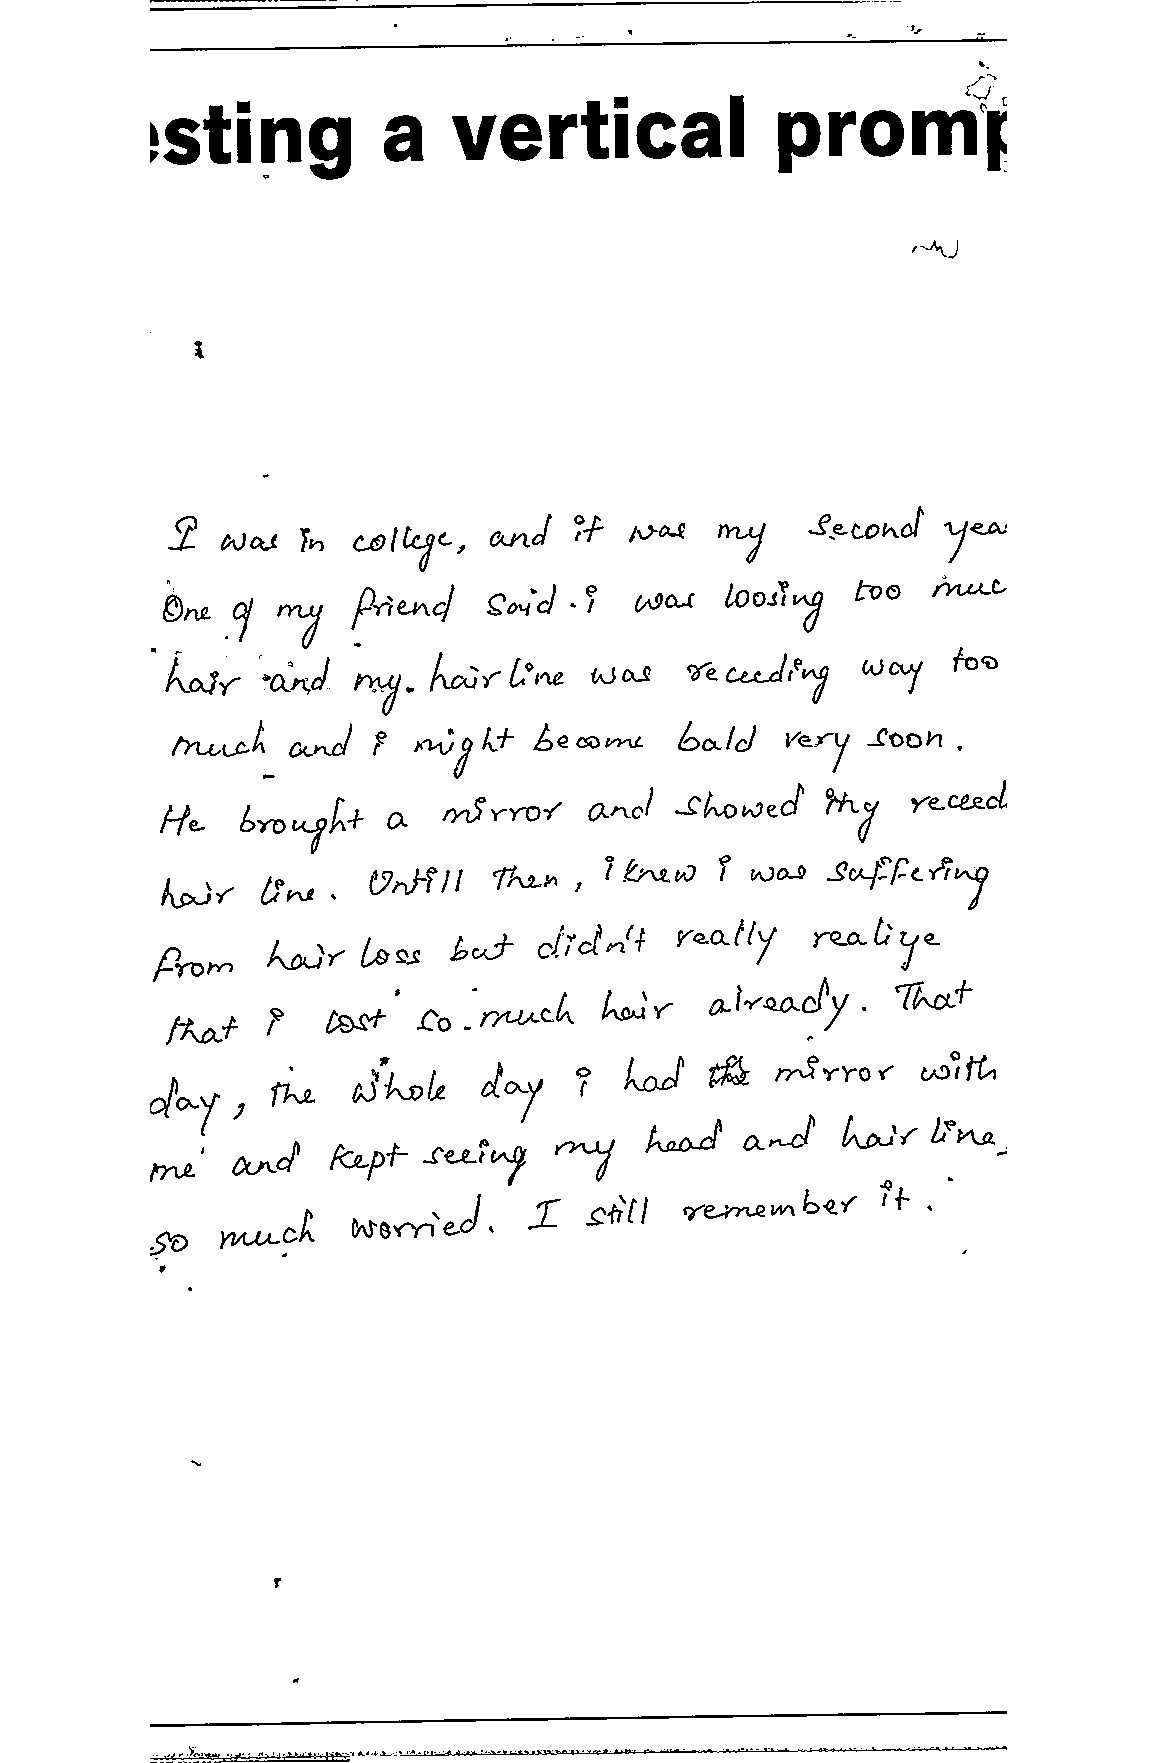 esting a vertical promp
I was in college, and it was my second yea
One of my friend said i was loosing too muc
hair and my hair line was receeding way too
much and i might become bald very soon.
He brought a mirror and showed my receed
hair line. Untill then, i knew i was suffering
from hair loss but didn't really realize
that i lost so much hair already. That
day, the whole day i had the mirror with
me and kept seeing my head and hair line,
so much worried. I still remember it.